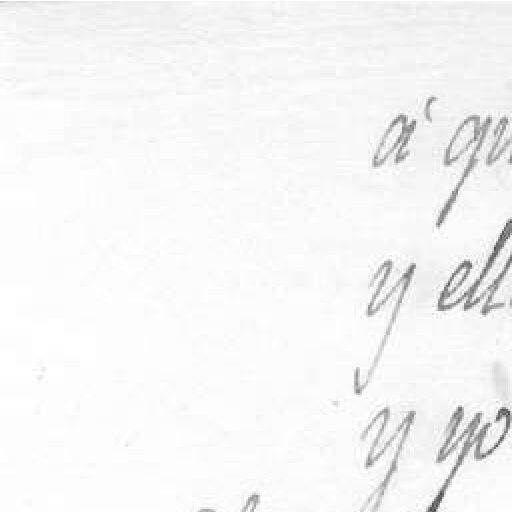 á qu
y ell
y yo